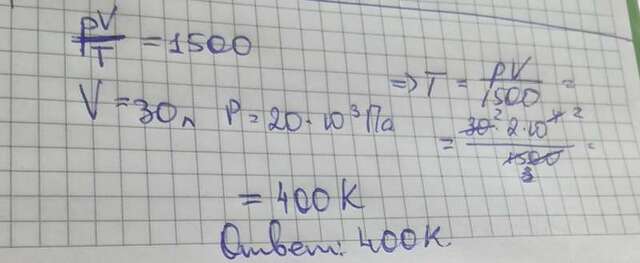 pV/T = 1500
V = 30л P = 20 · 10³ Па
=> T = pV/1500 =
= 30 · 2 · 10⁴/1500 =
= 400 K
Ответ: 400 K.